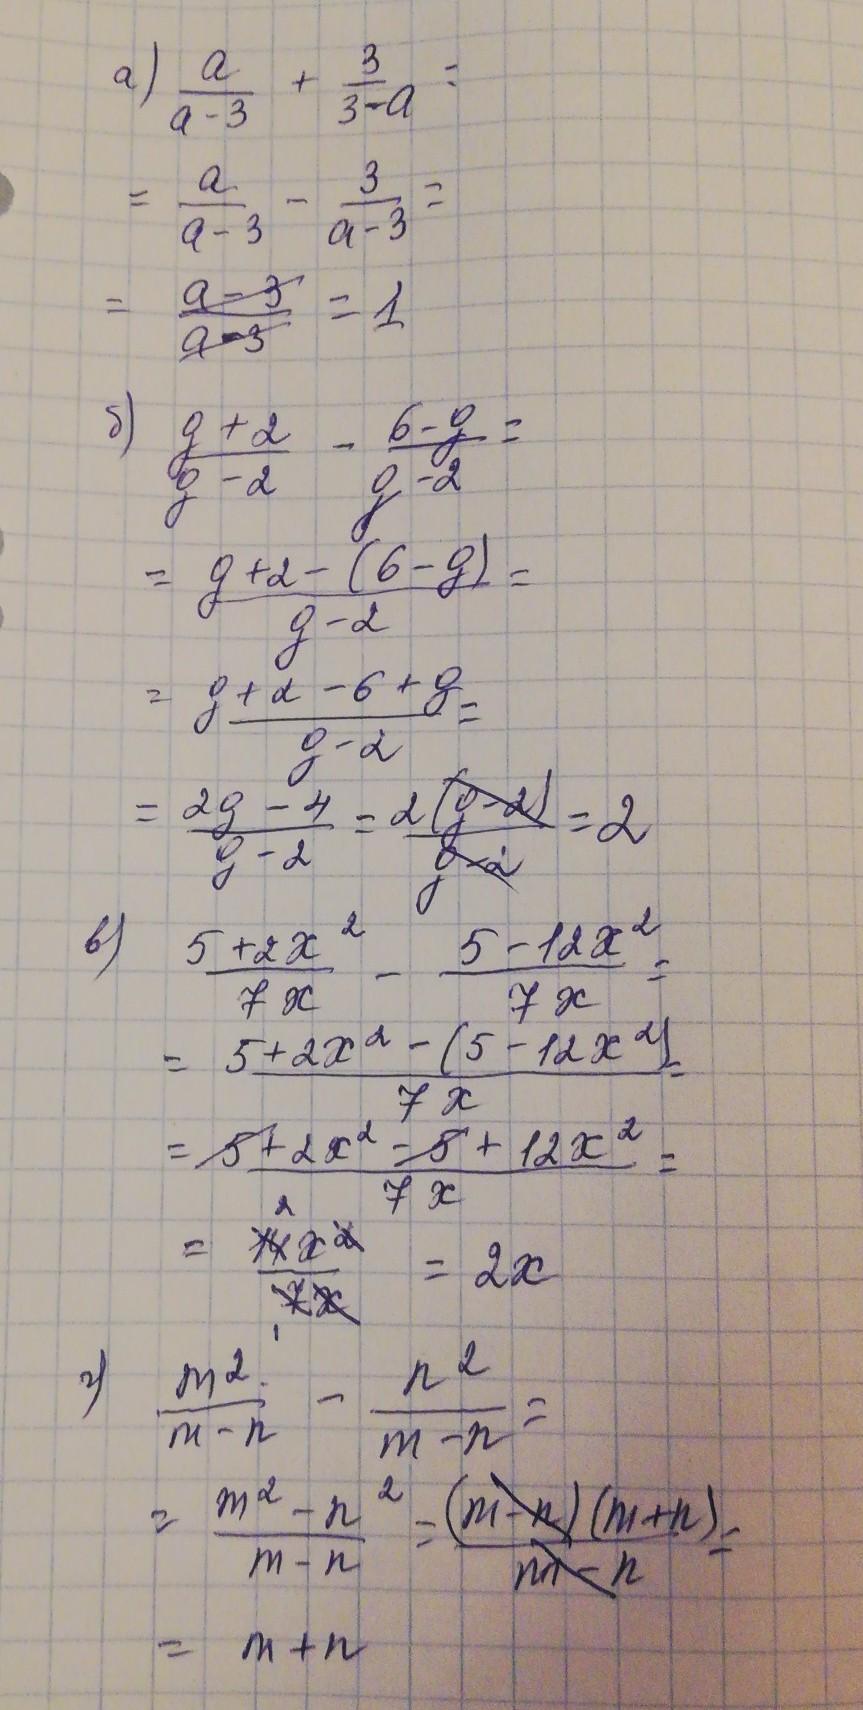 а) a/(a-3) + 3/(3-a) =
= a/(a-3) - 3/(a-3) =
= (a-3)/(a-3) = 1
б) (g+2)/(g-2) - (6-g)/(g-2) =
= (g+2-(6-g))/(g-2) =
= (g+2-6+g)/(g-2) =
= (2g-4)/(g-2) = 2(g-2)/(g-2) = 2
в) (5+2x²)/(7x) - (5-12x²)/(7x) =
= (5+2x²-(5-12x²))/(7x) =
= (5+2x²-5+12x²)/(7x) =
= 14x²/(7x) = 2x
г) m²/(m-n) - n²/(m-n) =
= (m²-n²)/(m-n) = (m-n)(m+n)/(m-n) =
= m+n